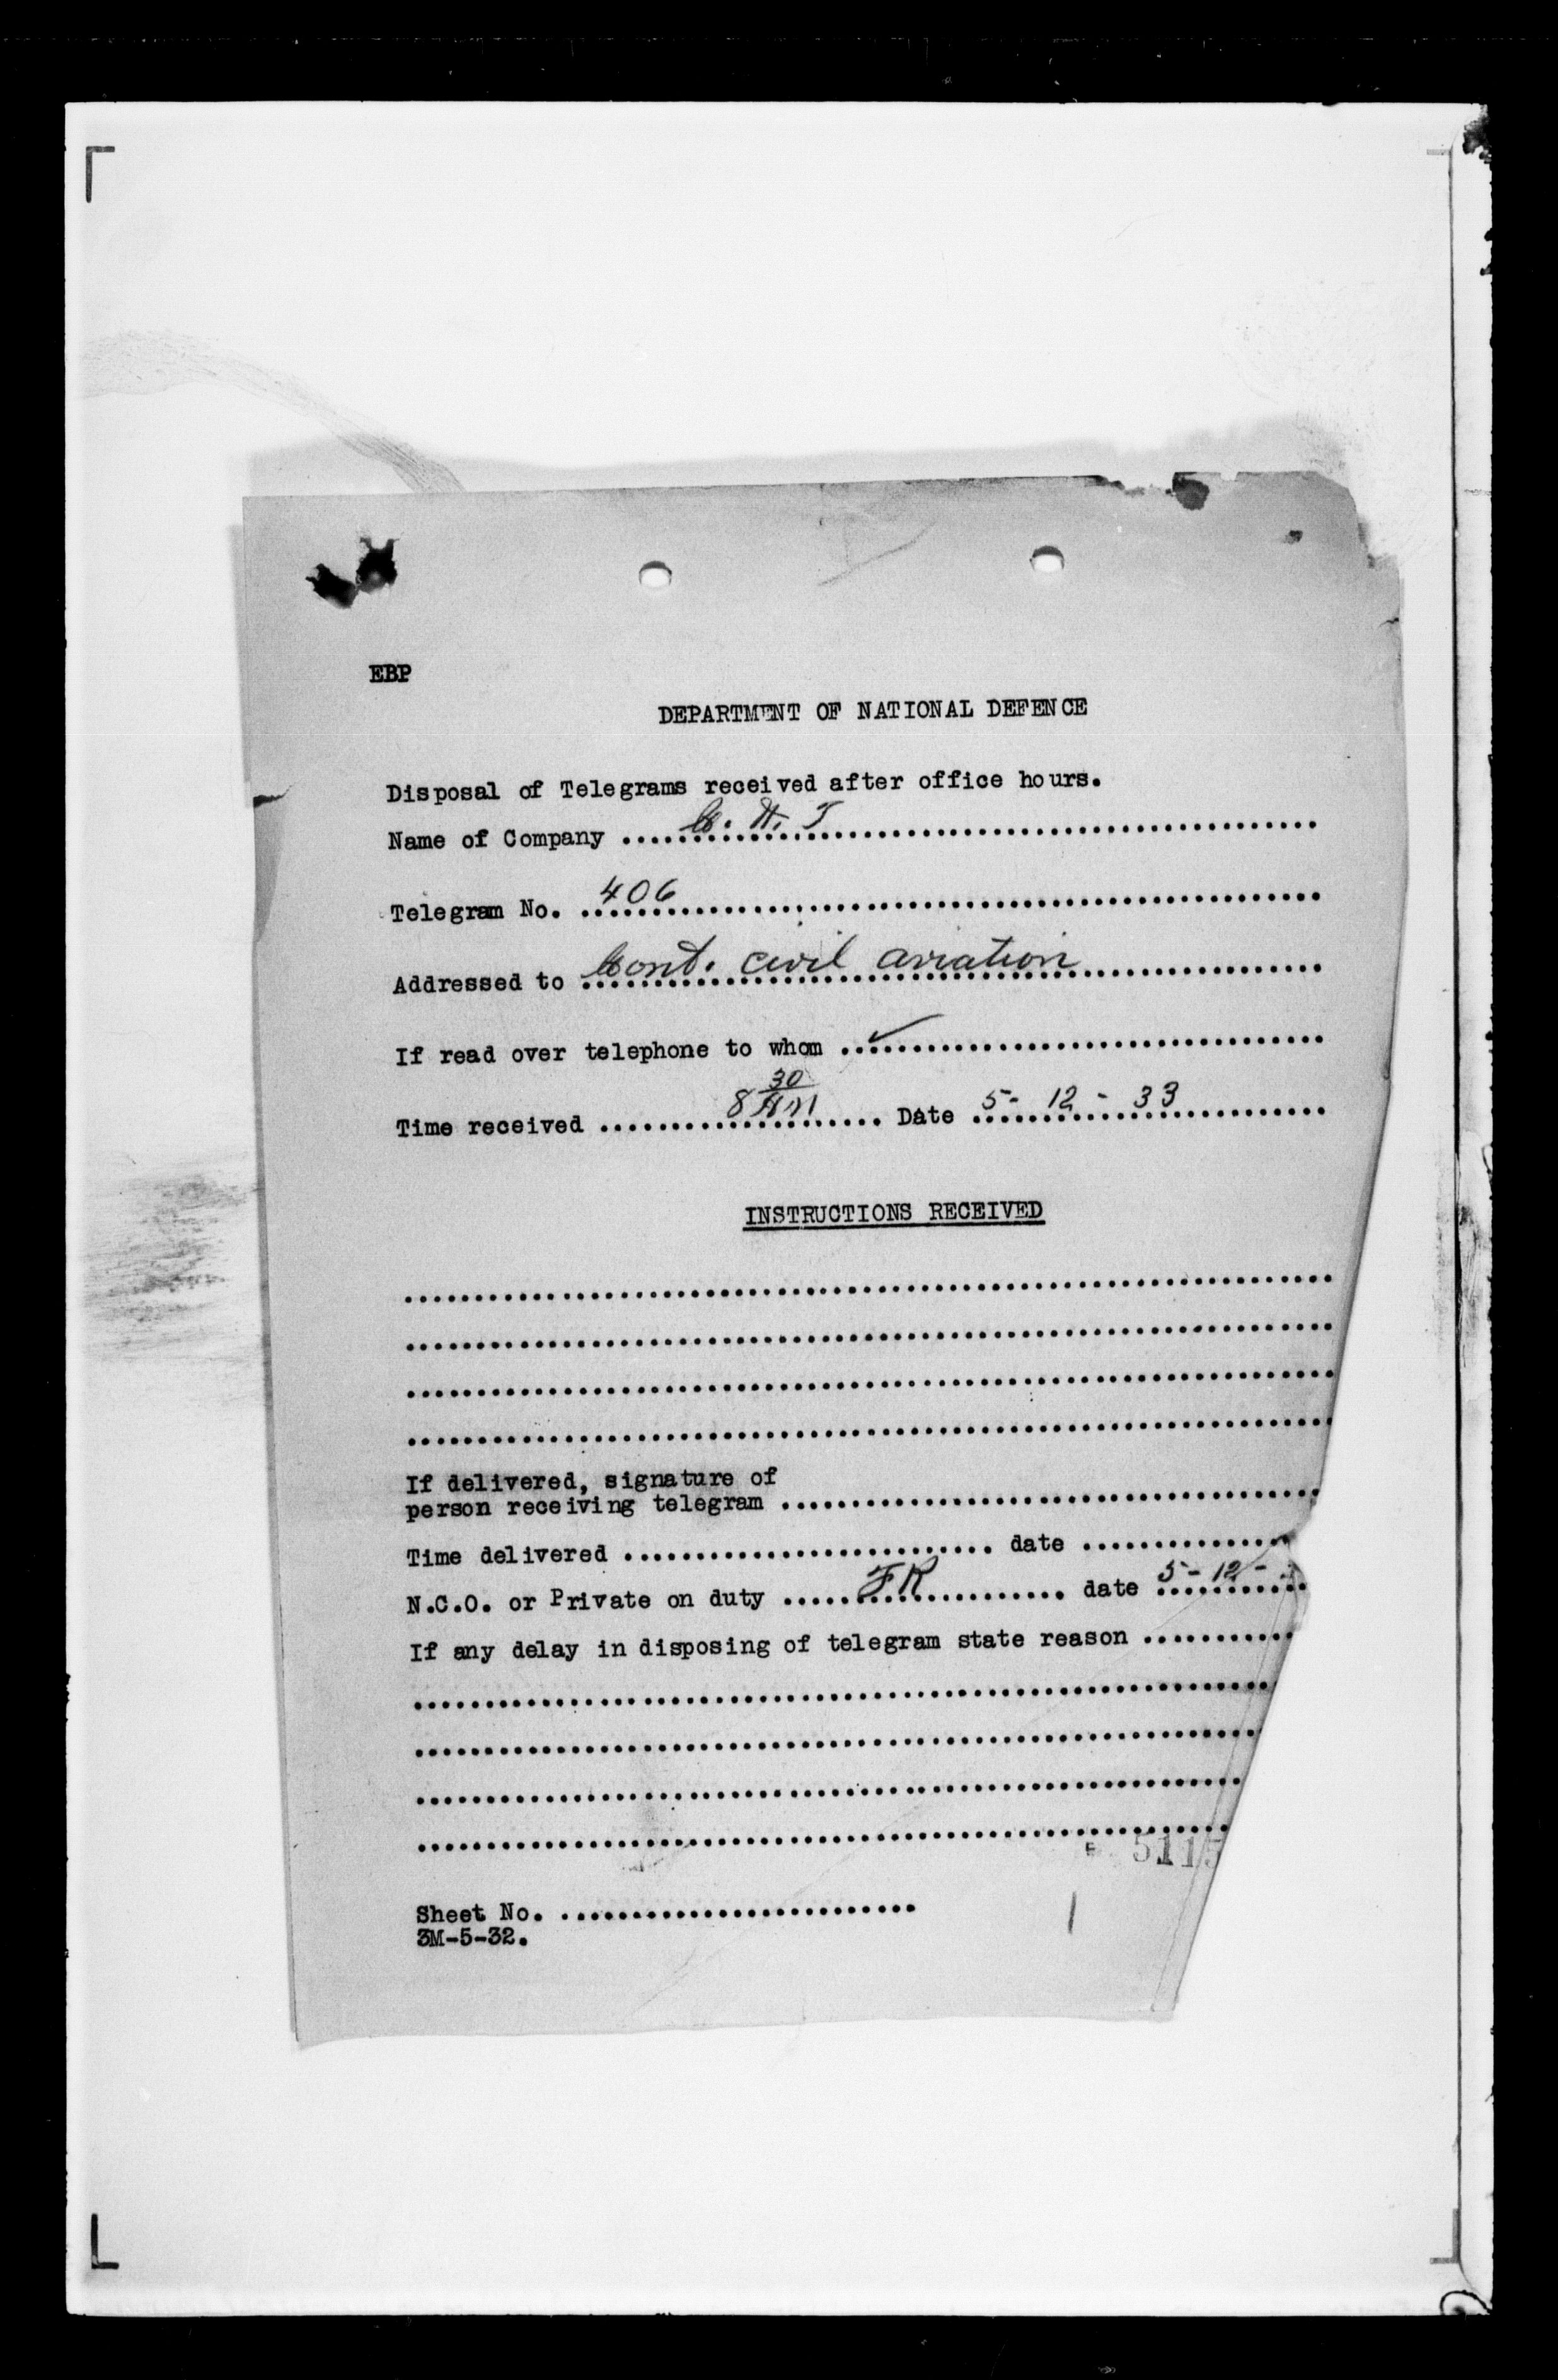 EBP
DEPARTMENT OF NATIONAL DEFENCE
Disposal of Telegrams received after office hours.
Name of Company ..........
Telegram No. 406
Addressed to Cont. civil aviation
If read over telephone to whom ✓
Time received 8 30 AM Date 5 - 12 - 33
INSTRUCTIONS RECEIVED
If delivered, signature of
person receiving telegram ..........
Time delivered .......... date ..........
N.C.O. or Private on duty FR date 5 - 12 -
If any delay in disposing of telegram state reason ..........
5115
Sheet No. ..........
3M-5-32.